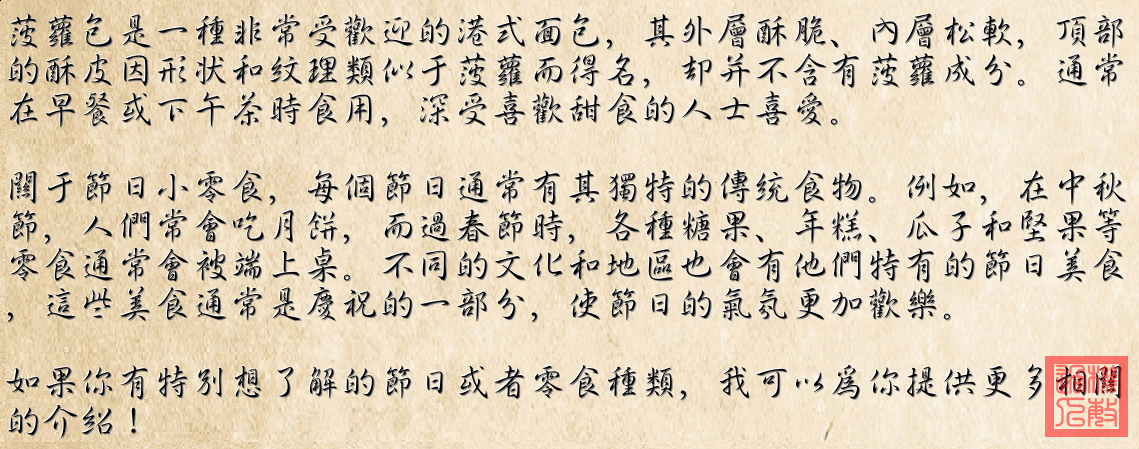 菠蘿包是一種非常受歡迎的港式面包，其外層酥脆、內層松軟，頂部
的酥皮因形狀和紋理類似于菠蘿而得名，却并不含有菠蘿成分。通常
在早餐或下午茶時食用，深受喜歡甜食的人士喜愛。
關于節日小零食，每個節日通常有其獨特的傳統食物。例如，在中秋
節，人們常會吃月餅，而過春節時，各種糖果、年糕、瓜子和堅果等
零食通常會被端上桌。不同的文化和地區也會有他們特有的節日美食
，這些美食通常是慶祝的一部分，使節日的氣氛更加歡樂。
如果你有特別想了解的節日或者零食種類，我可以為你提供更多相關
的介紹！